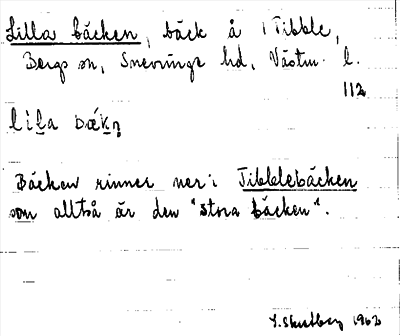 Lilla bäcken, bäck å i Tibble,
Bergs sn, Snevringe hd, Västm. l.
112
lila bæ̀kn̥
Bäcken rinner ner i Tibblebäcken
som alltså är den "stora bäcken".
1962